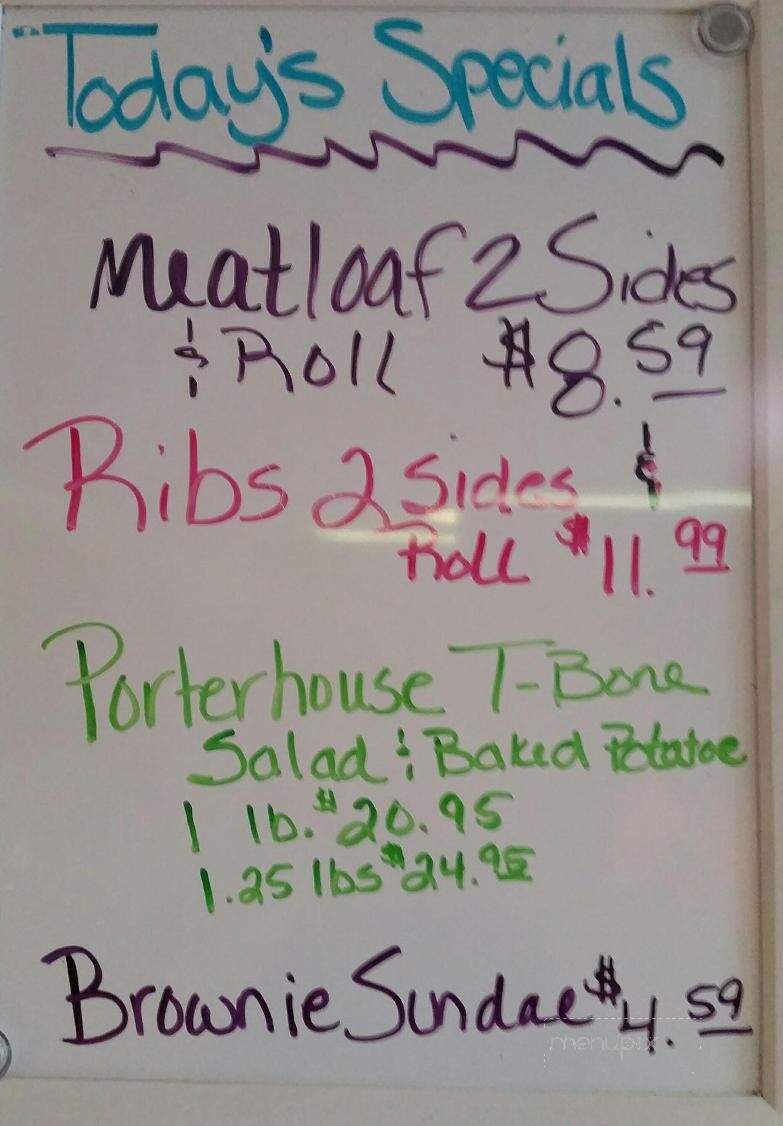 Today's Specials
Meatloaf 2 Sides
& Roll $8.59
Ribs 2 Sides &
Roll $11.99
Porterhouse T-Bone
Salad & Baked Potatoe
1 lb. $20.95
1.25 lbs $24.95
Brownie Sundae $4.59
menupix